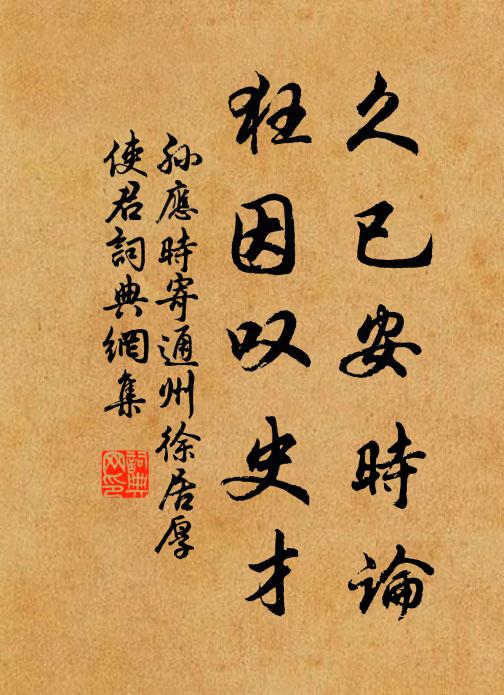 久已安時論
狂因叹史才
孙應時寄通州徐居厚
使君詞典網集
詞典
网印